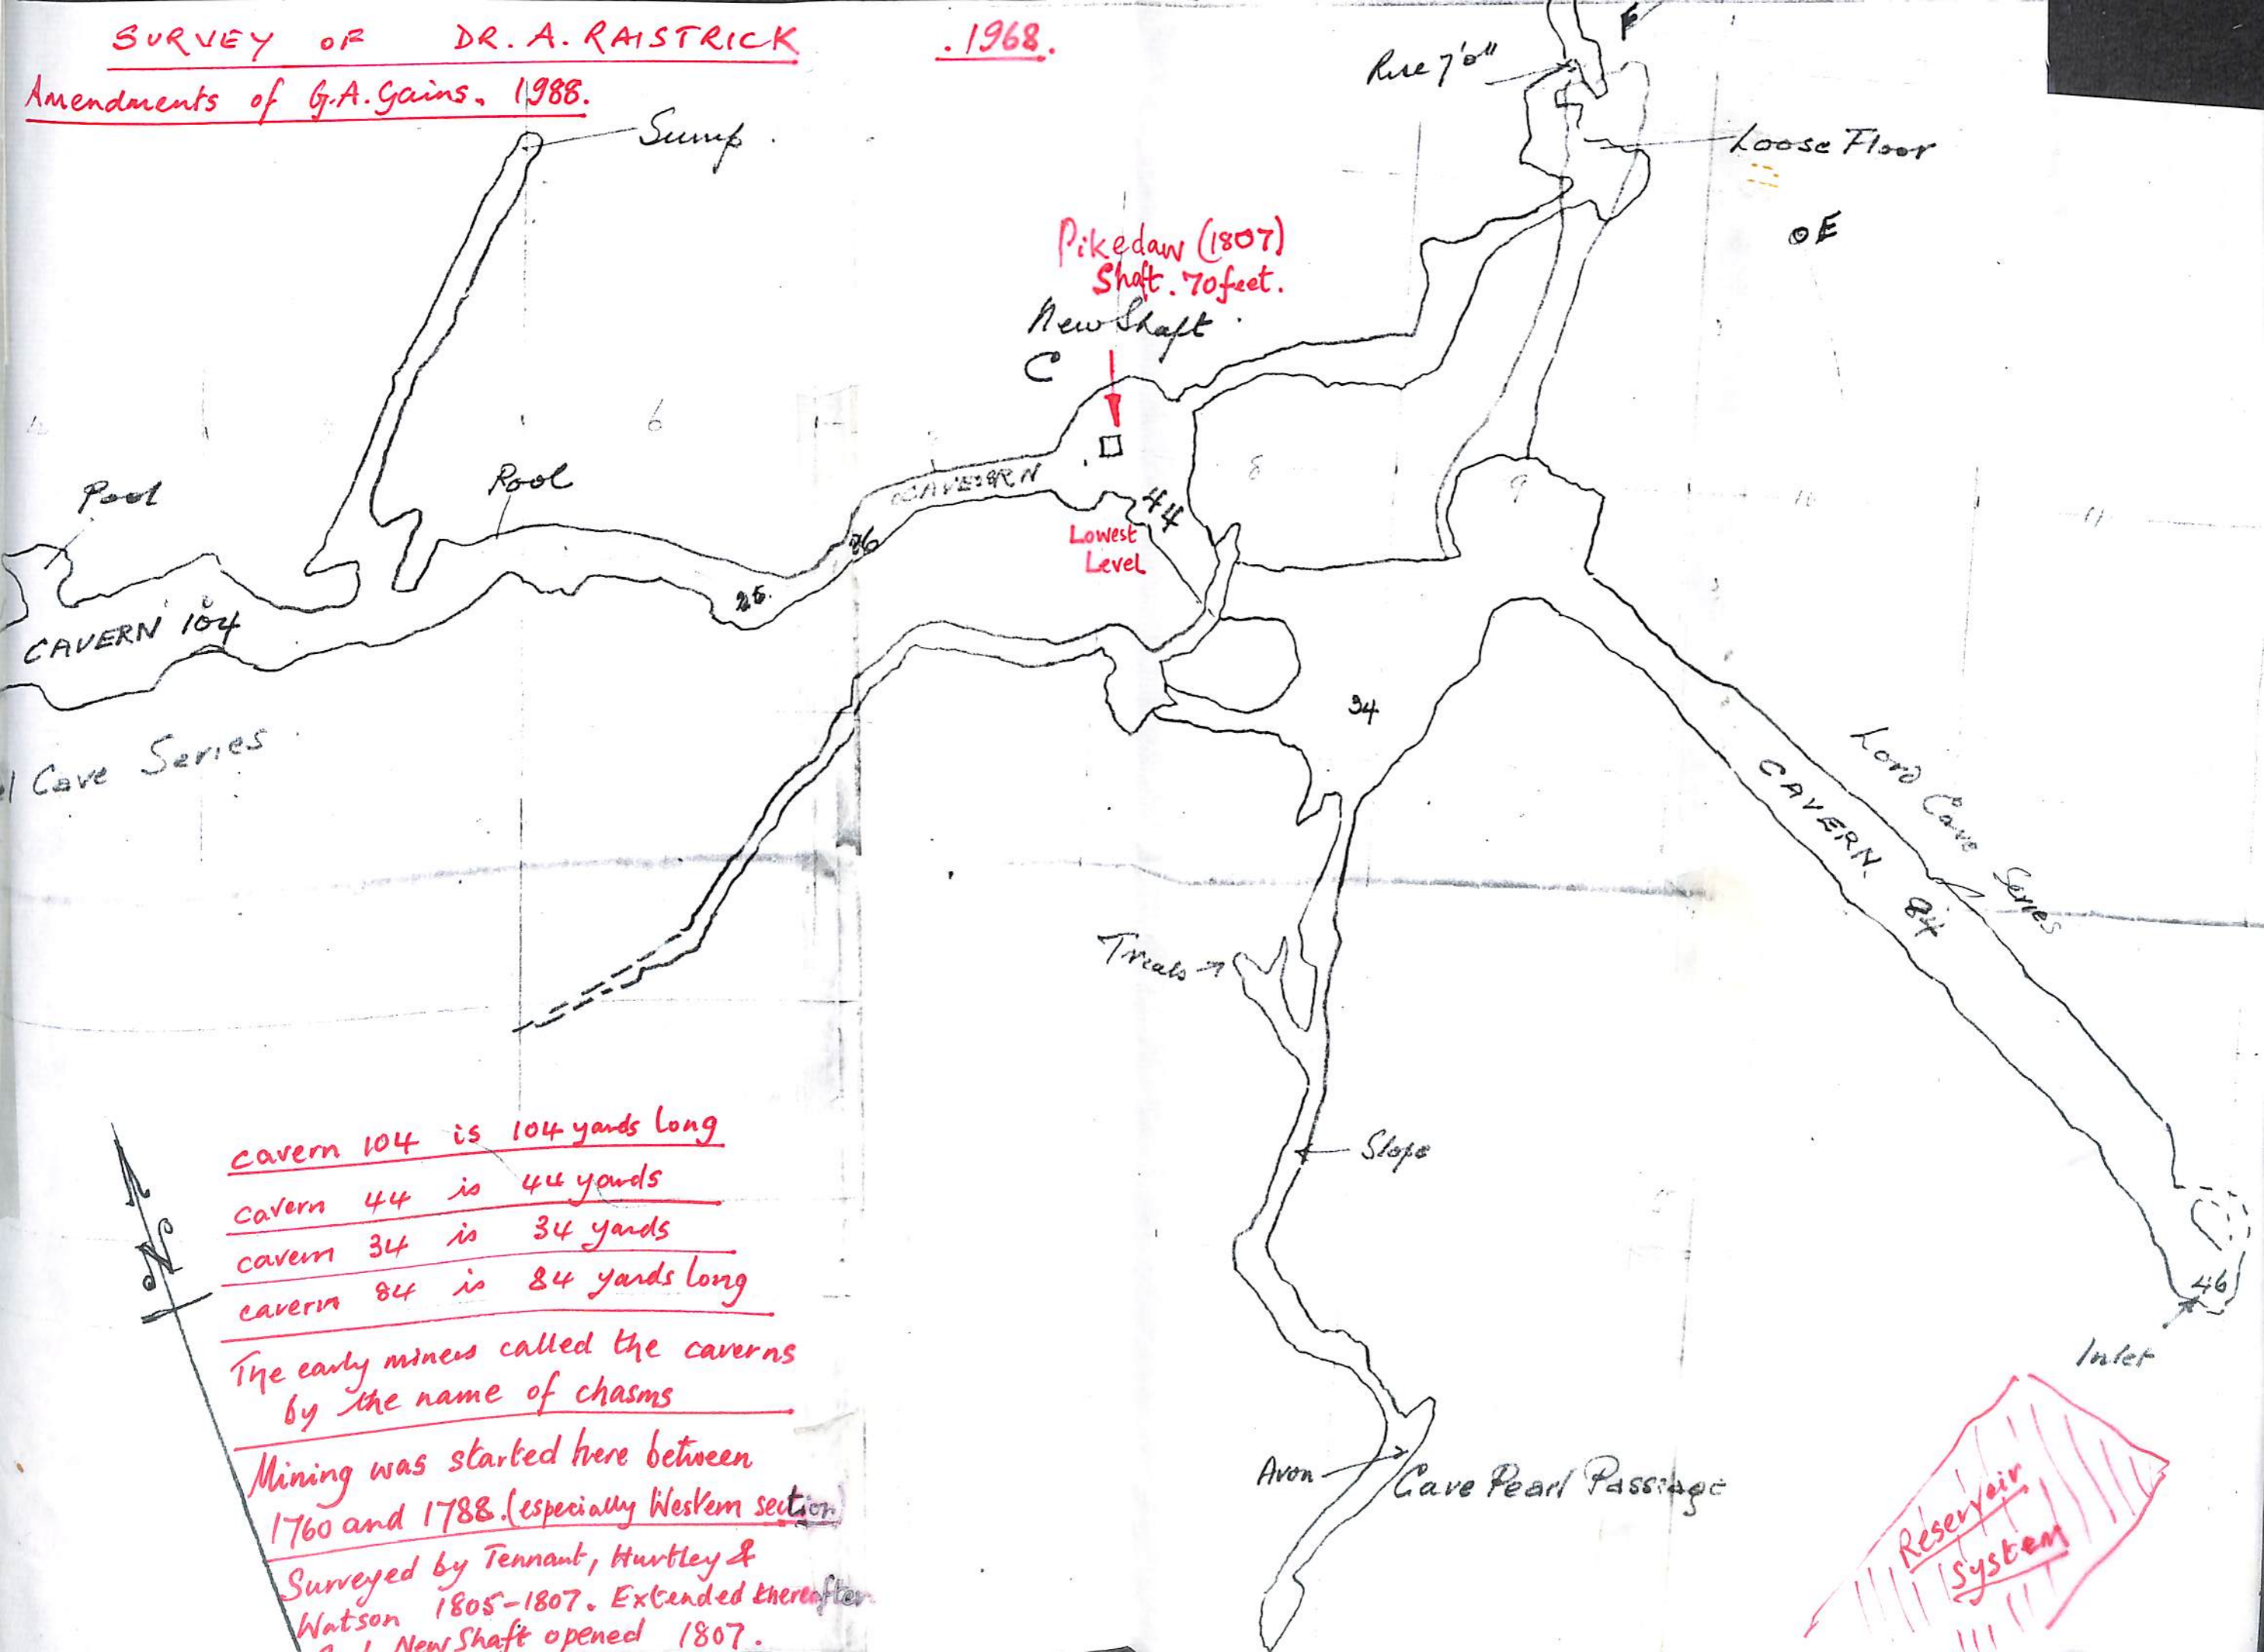 SURVEY OF DR. A. RAISTRICK .1968.
Amendments of G.A. Gains. 1988.
Sump.
Rise 7'0"
F
Loose Floor
E
Pikedaw (1807)
Shaft. 70 feet.
New Shaft
C
6
Pool
Pool
CAVERN
44
8
9
10
11
Lowest
Level
26
25.
CAVERN 104
34
Cave Series
Lord Cave Series
CAVERN 84
Trials
Slope
46
Inlet
Avon
Cave Pearl Passage
N
cavern 104 is 104 yards long
cavern 44 is 44 yards
cavern 34 is 34 yards
cavern 84 is 84 yards long
The early miners called the caverns
by the name of chasms
Mining was started here between
1760 and 1788. (especially Western section)
Surveyed by Tennant, Hurtley &
Watson 1805-1807. Extended thereafter
New Shaft opened 1807.
Reservoir
System